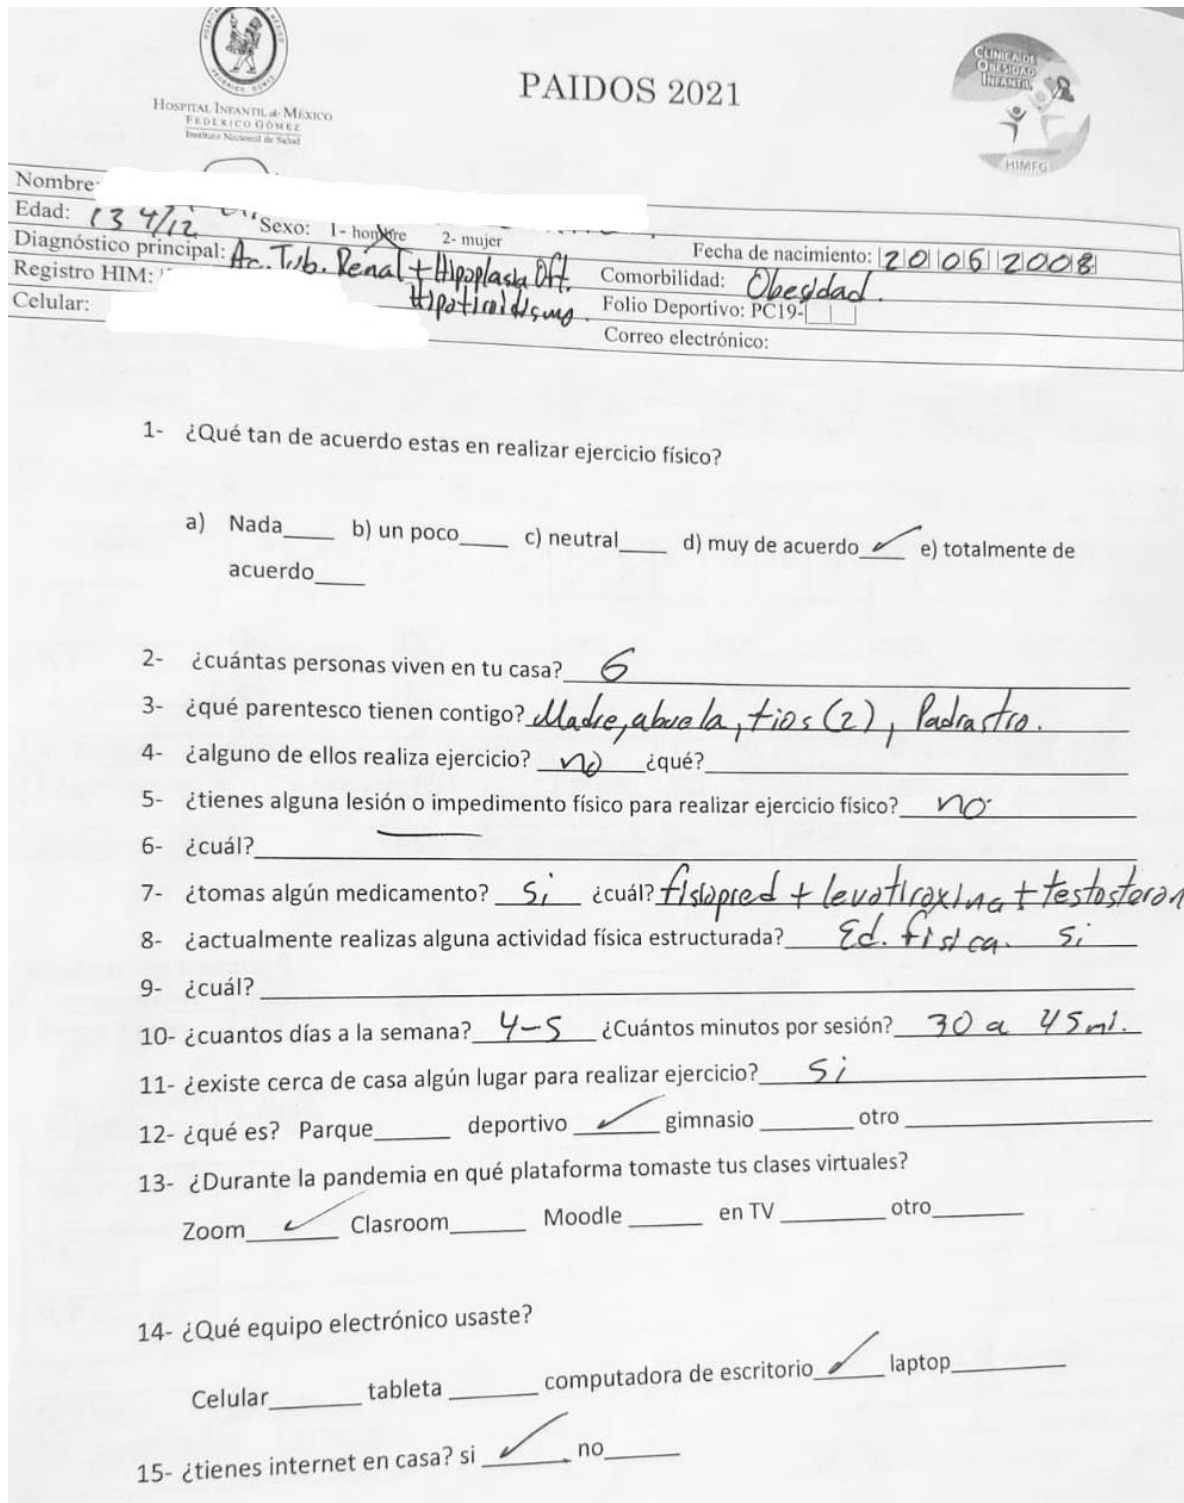 HOSPITAL INFANTIL de MÉXICO
FEDERICO GÓMEZ
Instituto Nacional de Salud
PAIDOS 2021
CLINICA DE
OBESIDAD
INFANTIL
HIMFG
Nombre:
Edad: 13 4/12 Sexo: 1- hombre 2- mujer Fecha de nacimiento: |2|0||0|6||2|0|0|8|
Diagnóstico principal: Ac. Tub. Renal + Hipoplasia Oft. Comorbilidad: Obesidad.
Registro HIM: Hipotiroidismo. Folio Deportivo: PC19-|__|__|
Celular: Correo electrónico:
1- ¿Qué tan de acuerdo estas en realizar ejercicio físico?
a) Nada____ b) un poco____ c) neutral____ d) muy de acuerdo ✓ e) totalmente de
acuerdo____
2- ¿cuántas personas viven en tu casa? 6
3- ¿qué parentesco tienen contigo? Madre, abuela, tios (2), Padrastro.
4- ¿alguno de ellos realiza ejercicio? no ¿qué?____
5- ¿tienes alguna lesión o impedimento físico para realizar ejercicio físico? no
6- ¿cuál?____
7- ¿tomas algún medicamento? Si ¿cuál? fisiopred + levotiroxina + testosteron
8- ¿actualmente realizas alguna actividad física estructurada? Ed. física. Si
9- ¿cuál?____
10- ¿cuantos días a la semana? 4-5 ¿Cuántos minutos por sesión? 30 a 45 mi.
11- ¿existe cerca de casa algún lugar para realizar ejercicio? Si
12- ¿qué es? Parque____ deportivo ✓ gimnasio ____ otro ____
13- ¿Durante la pandemia en qué plataforma tomaste tus clases virtuales?
Zoom ✓ Clasroom____ Moodle ____ en TV ____ otro____
14- ¿Qué equipo electrónico usaste?
Celular____ tableta ____ computadora de escritorio ✓ laptop____
15- ¿tienes internet en casa? si ✓ no____